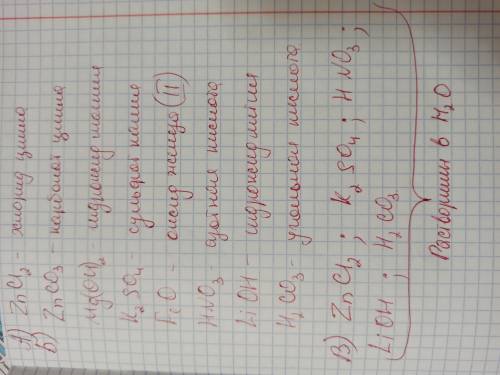 А) ZnCl₂ - хлорид цинка
Б)
ZnCO₃ - карбонат цинка
Mg(OH)₂ - гидроксид магния
K₂SO₄ - сульфат калия
FeO - оксид железа (II)
HNO₃ - азотная кислота
LiOH - гидроксид лития
H₂CO₃ - угольная кислота
В) ZnCl₂; K₂SO₄; HNO₃;
LiOH; H₂CO₃
Растворимы в H₂O